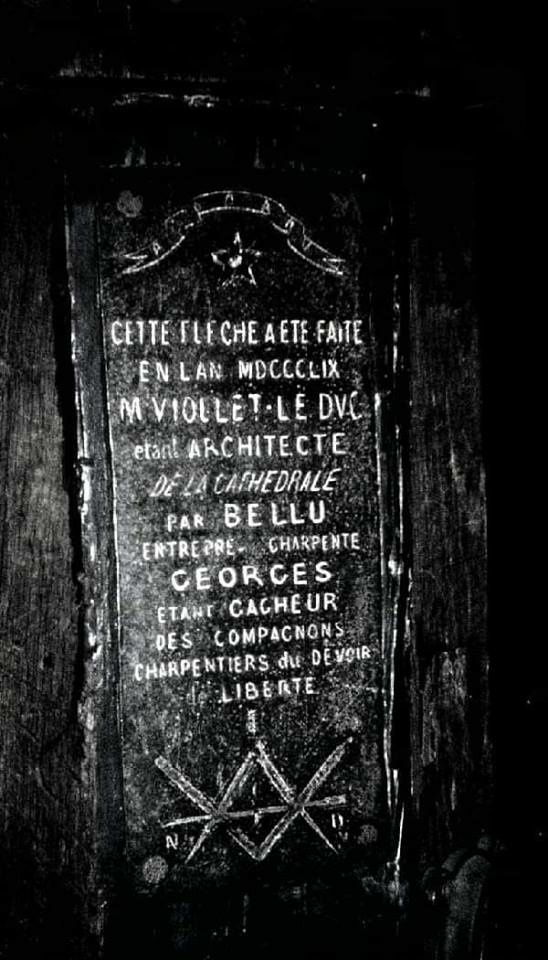 CETTE FLECHE A ETE FAITE
EN LAN MDCCCLIX
M VIOLLET·LE DVC
etant ARCHITECTE
DE LA CATHEDRALE
PAR BELLU
ENTREPRE. CHARPENTE
GEORGES
ETANT GACHEUR
DES COMPAGNONS
CHARPENTIERS du DEVOIR
LIBERTE
N D